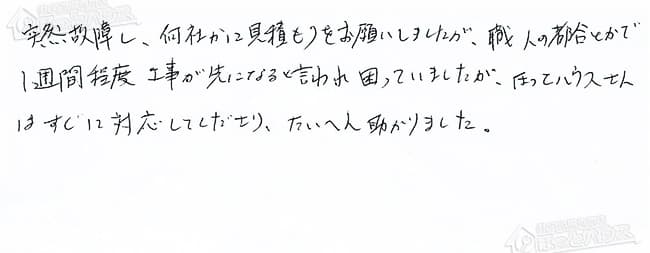 突然故障し、何社かに見積もりをお願いしましたが、職人の都合とかで
1週間程度工事が先になると言われ困っていましたが、ほっとハウスさん
はすぐに対応してくださり、たいへん助かりました。
ほっとハウス